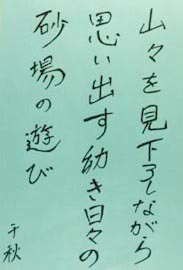 山々を見下ろしながら
思い出す幼き日々の
砂場の遊び
千秋